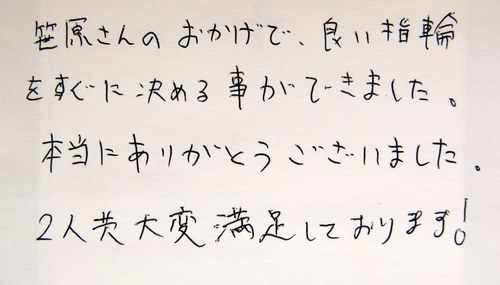 笹原さんのおかげで、良い指輪
をすぐに決める事ができました。
本当にありがとうございました。
2人共大変満足しております!